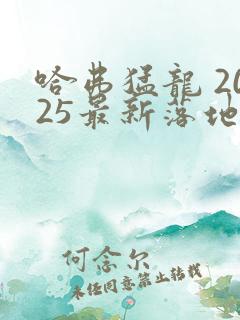 哈弗猛龍 20
25最新落地
何念尔
未经同意禁止转载